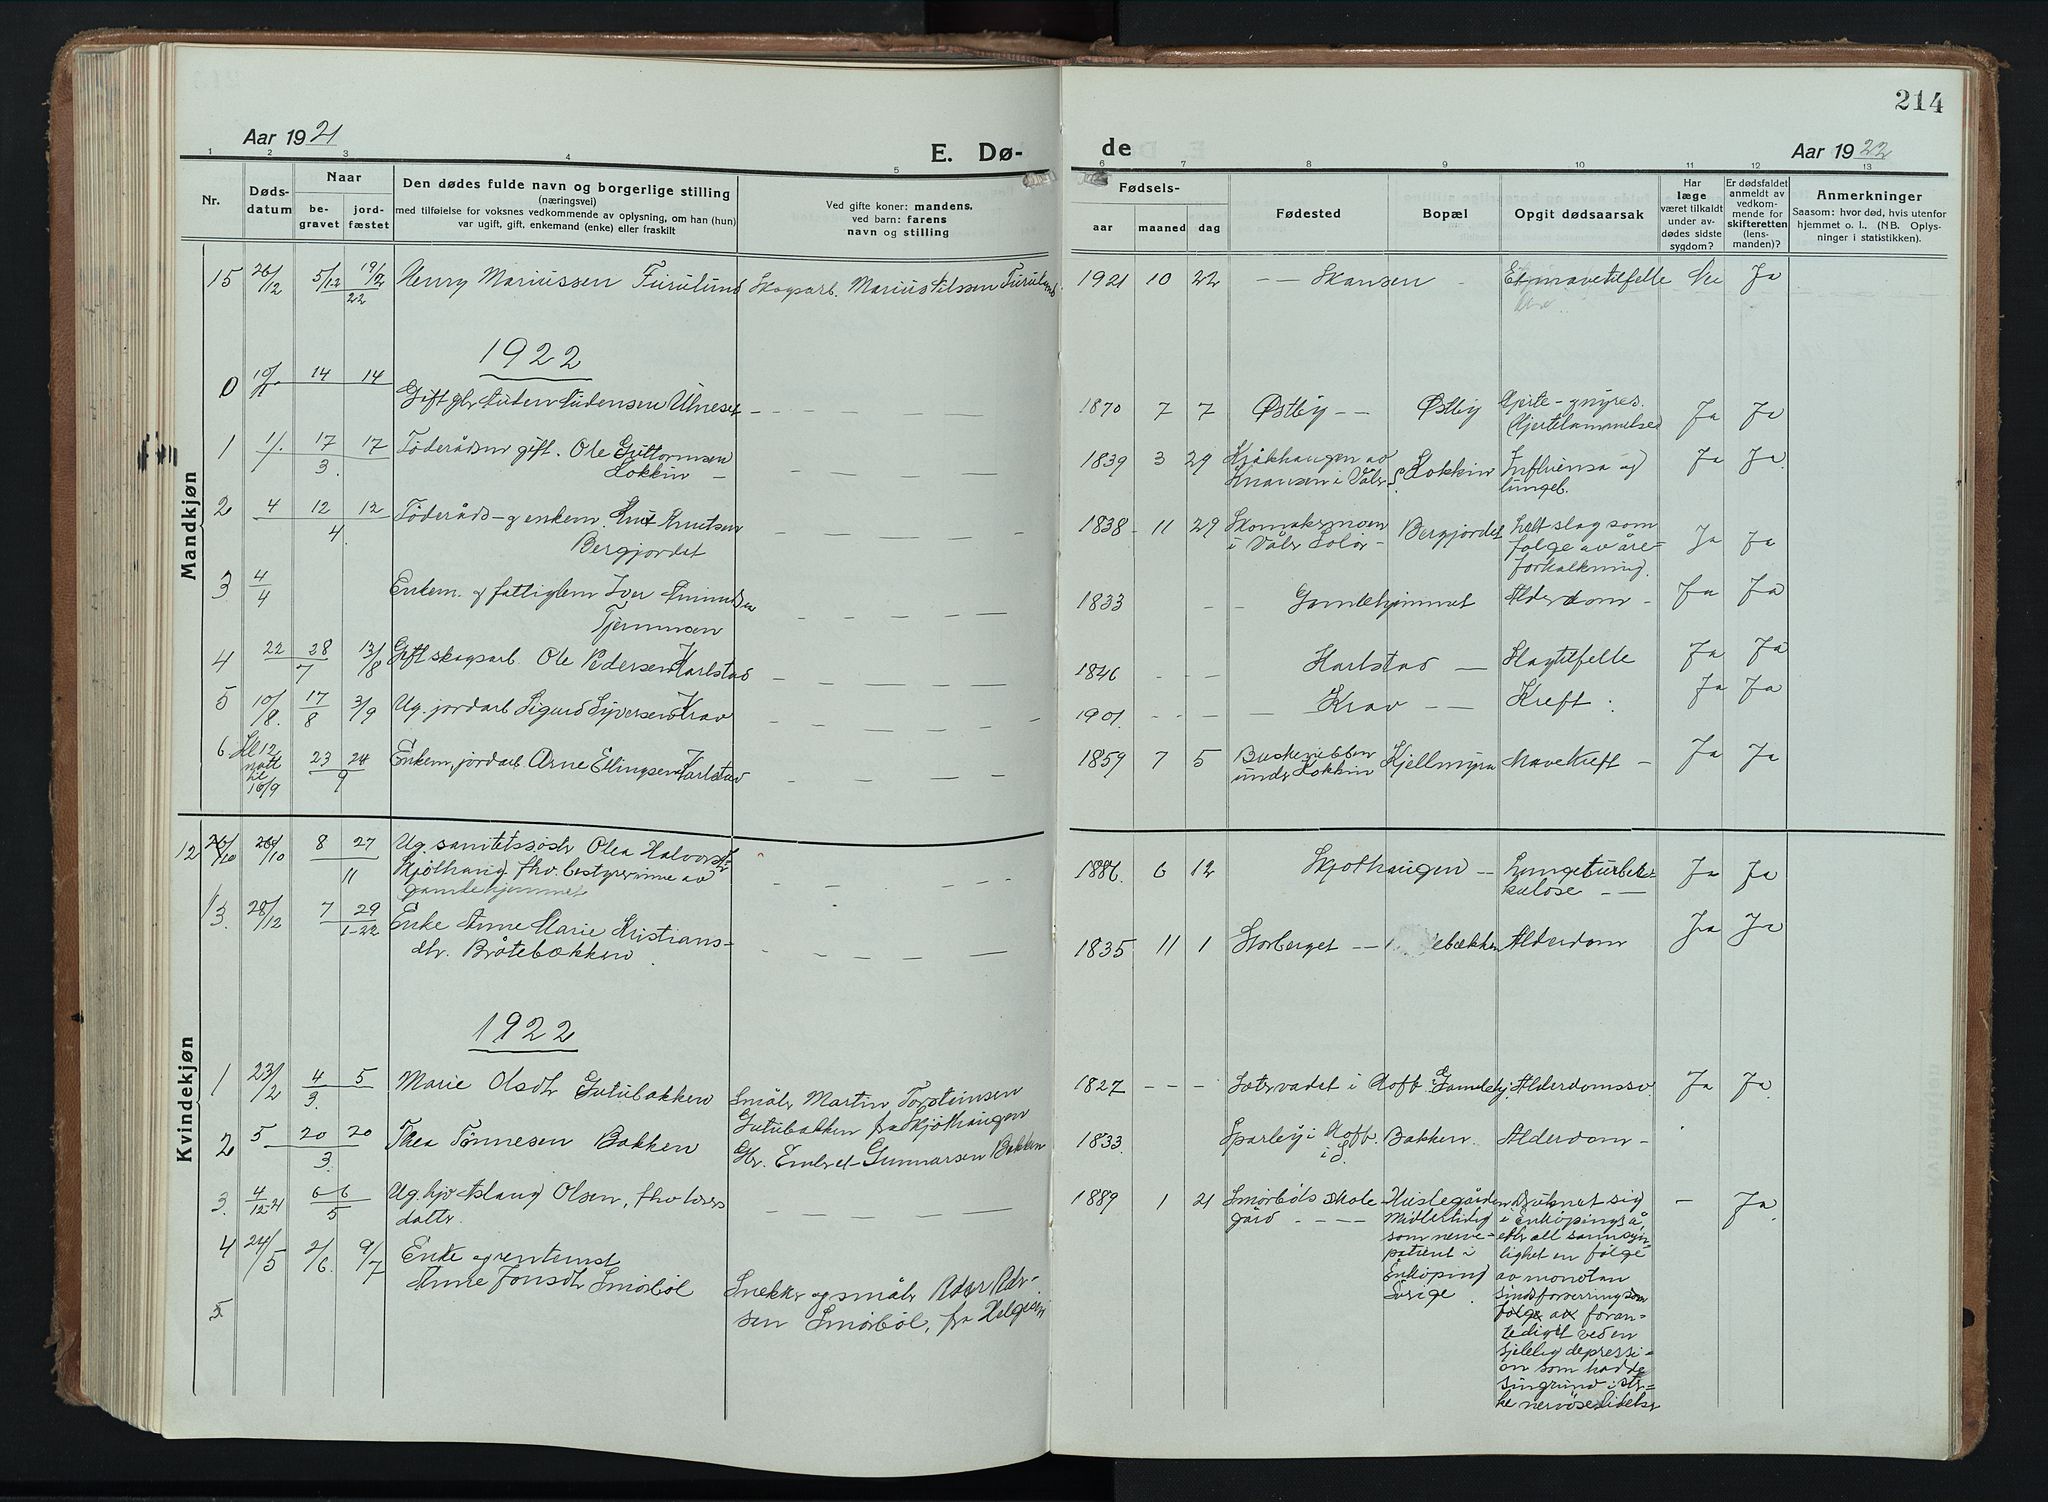 214
Aar 1921
E. Dø-
de
Aar 1922
1 2 3 4 5 6 7 8 9 10 11 12 13
Nr.
Døds-
datum
Naar
be-
gravet
jord-
fæstet
Den dødes fulde navn og borgerlige stilling
(næringsvei)
med tilføielse for voksnes vedkommende av oplysning, om han (hun)
var ugift, gift, enkemand (enke) eller fraskilt
Ved gifte koner: mandens,
ved barn: farens
navn og stilling
Fødsels-
aar maaned dag
Fødested
Bopæl
Opgit dødsaarsak
Har
læge
været tilkaldt
under av-
dødes sidste
sygdom?
Er dødsfaldet
anmeldt av
vedkom-
mende for
skifteretten
(lens-
manden)?
Anmerkninger
Saasom: hvor død, hvis utenfor
hjemmet o. l.. (NB. Oplys-
ninger i statistikken).
Mandkjøn
15 26/12 5/12 19/2 22 Henry Mariussen Furulund Skogsarb. Marius Nilssen Furulund 1921 10 22 - - Skansen Et mavetilfelle Nei Ja
1922
0 14 14
Gift gbr Auden Audensen Ulneset 1870 7 7 Østby - - Østby Hjerte-
Hjertelammelse Ja Ja
1 17 17 3. Føderådsm gift. Ole Guttormsen
Lokkin 1839 3 29 Kjåkhaugen av
Knausen i Våler S. Lokkin Influensa og
lungeb. Ja Ja
2 4 12 12 4. Føderåds- g enkem. Knut Knutsen
Bergjordet 1838 11 29 Skomakermoen
i Våler Solør Bergjordet slag som
følge av åre-
forkalkning. Ja Ja
3 4/4 Enkem. g fattiglem Iver Amundsen
1833 Gamlehjemmet Alderdom Ja Ja
4 22 28 7 13/8 Gift skogsarb. Ole Pedersen Karlstad 1846 Karlstad Slagtilfelle Ja Ja
5 10/8. 17/8 3/9 Ug. jordarb Sigurd Syversen Krav 1901. Krav Kreft Ja Ja
6. Kl 12
natt
til
16/9 23 24 9 Enkem, jordarb. Arne Ellingsen Karlstad 1859 7 5
under Lokkin Kjellmyra Mavekreft Ja Ja
Kvindekjøn
12 26/10 8 27 11 Ug. sanitetssøstr Olea Halvorsdtr
Skjølhaug, fhv. bestyrerinne av
gamlehjemmet 1886. 6 12 Skjolhaugen Lungetuberk-
kuløse Ja Ja
13 28/12 7 29 1-22 Enke Anne Marie Kristians-
dtr. Bråtebækken 1835 11 1 Storberget ebækken Alderdom Ja Ja
1922
1 23/2 4 5 3. Marie Olsdtr Gutubakken Småbr Martin Torstensen
Gutubakken fra Skjolhaugen 1827 i Hof Gamlehj. Alderdomssv. Ja Ja
2 5 20 20 3. Thea Tønnesen Bakken Gbr. Embret Gunnarsen Bakken 1833. i Hof.
i S. Bakken. Alderdom
3. 4/12-21 6 6 5 Ug. hjv Aslaug Olsen, fhv lærer
datter. 1889 1 21 Smørbøls skole
gård Huslegården,
midlertidig
som nerve-
patient i
Enköping
Sverige. druknet sig
i Enköpings å,
efter all sannsyn-
lighet en følge
av monoton
sindsforvirring som
følge av foran-
ledigit ved en
sjelelig depressi-
on som hadde
sin grund i ster-
ke nervøse lidelser - Ja
4 24/5 2/6 9/7 Enke og rentenist
Anne Jonsdtr Smørbøl Snekker og småbr Peder Peder-
sen Smørbøl, fra Helgesen
5.